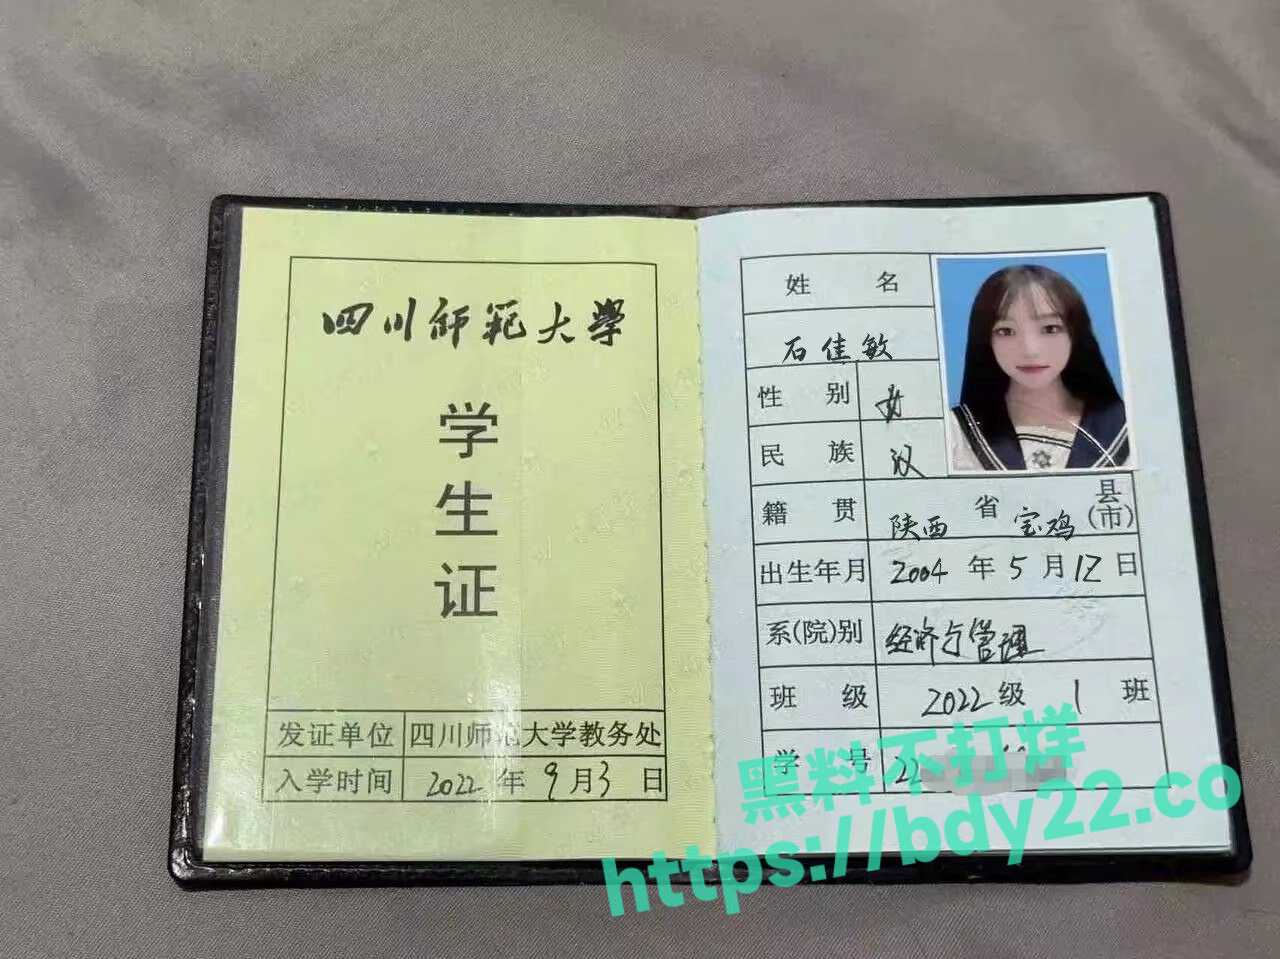 四川师范大学
学
生
证
发证单位 四川师范大学教务处
入学时间 2022 年 9 月 3 日
姓 名
石佳敏
性 别 女
民 族 汉
籍 贯 陕西 省 宝鸡 县(市)
出生年月 2004 年 5 月 12 日
系(院)别 经济与管理
班 级 2022 级 1 班
学 号 22
黑料不打烊
https://bdy22.co